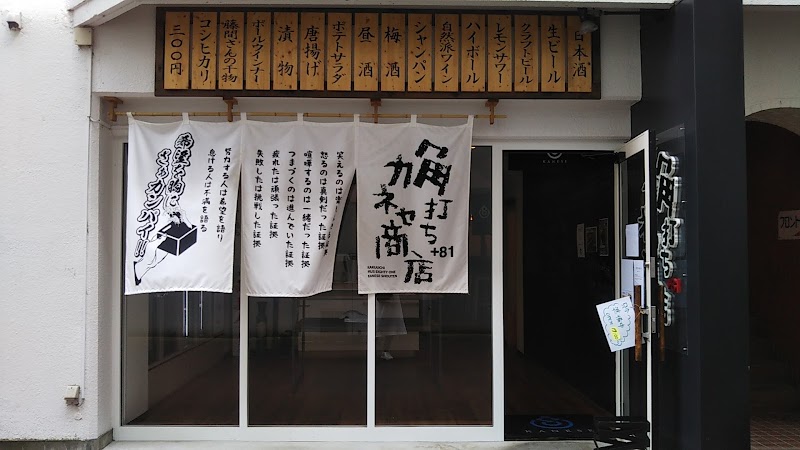 日本酒
生ビール
クラフトビール
レモンサワー
ハイボール
自然派ワイン
シャンパン
梅酒
昼酒
ポテトサラダ
唐揚げ
漬物
ポールウインナー
藤間さんの干物
コシヒカリ
三〇〇円
角打ち
カネセ商店
+81
KAKUUCHI
PLUS EIGHTY ONE
KANESE SHOUTEN
怒るのは真剣だった証拠
喧嘩するのは一緒だった証拠
つまづくのは進んでいた証拠
疲れたは頑張った証拠
失敗したは挑戦した証拠
希望を胸に
さぁカンパイ!!!
努力する人は希望を語り
怠ける人は不満を語る
KANESE
角打ち
フロント